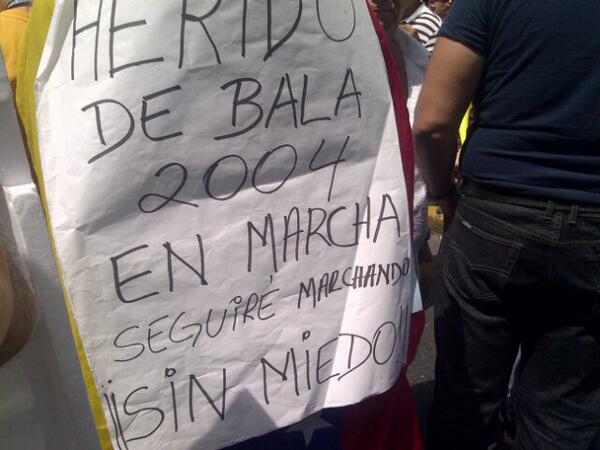 HERIDO
DE BALA
2004
EN MARCHA
SEGUIRÉ MARCHANDO
¡¡SIN MIEDO!!